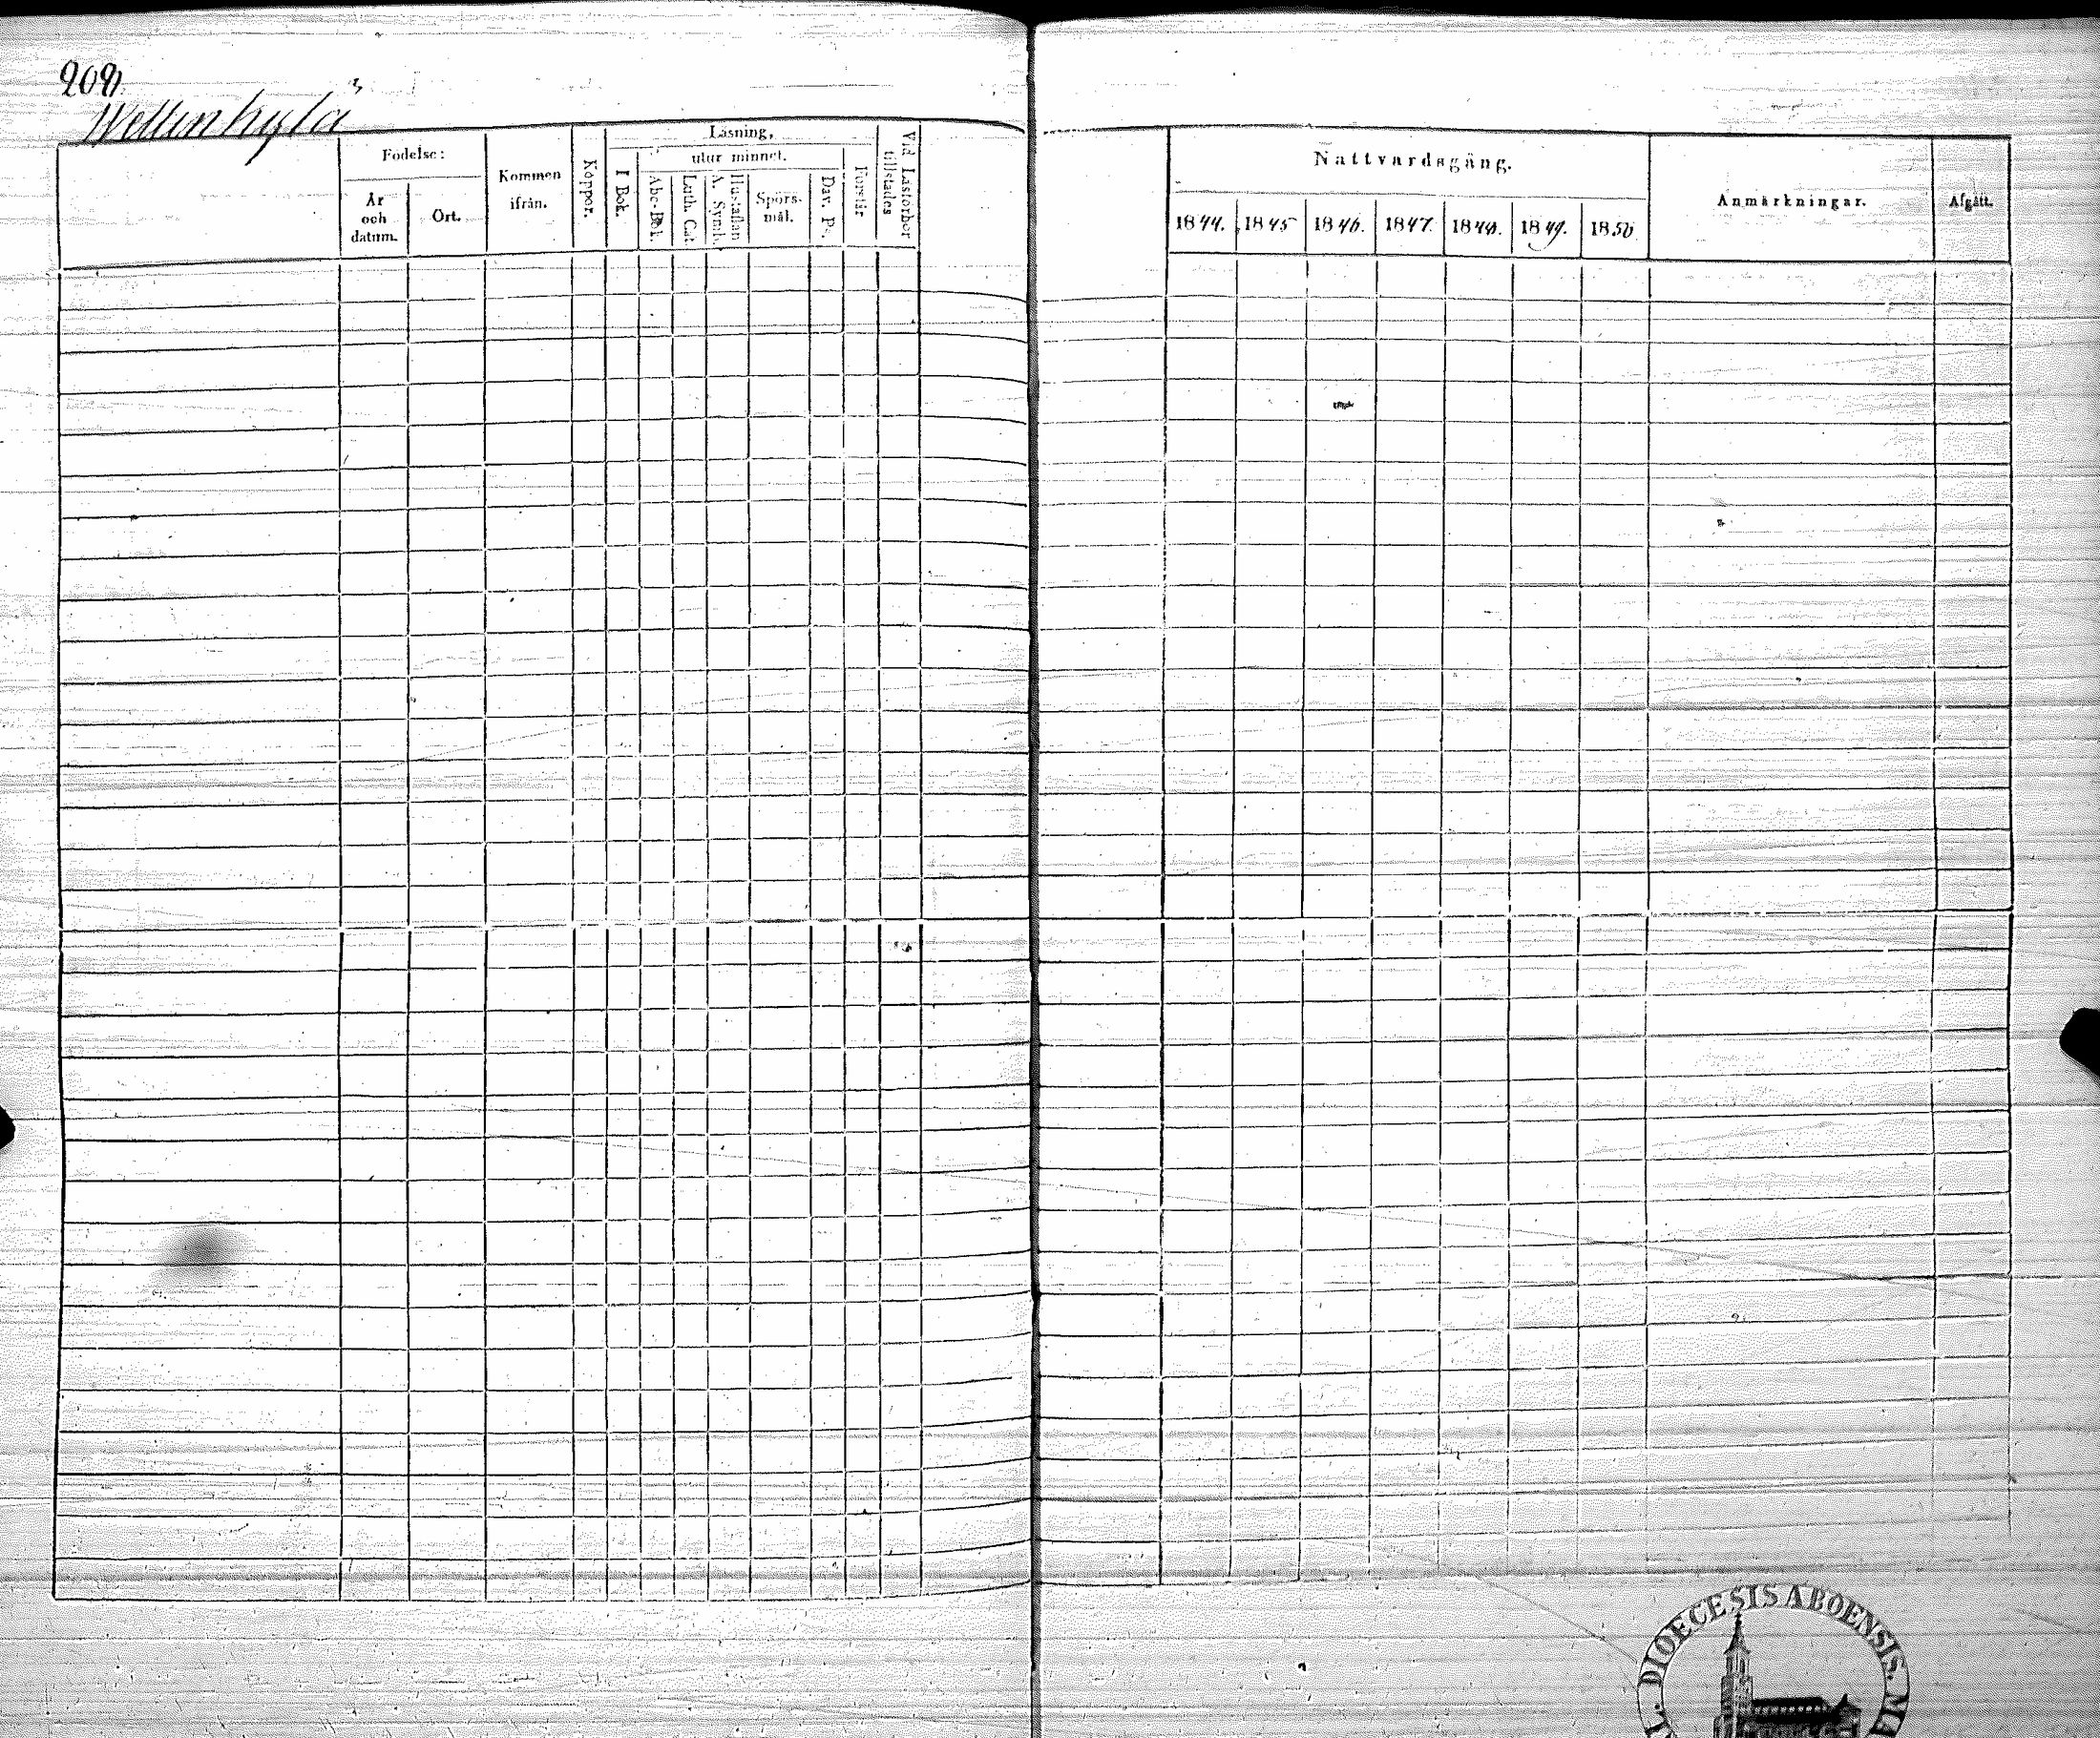 202
Wellunkylä
Födelse:
År
och
datum.
Ort.
Kommen
ifrån.
Koppor.
Läsning,
I Bok.
utur minnet.
Abc-Bok.
Luth. Cat.
A. Symb.
Hustaflan
Spörs-
mål.
Dav. Ps.
Förstår
Vid Läsförhör
tillstädes
Nattvardsgång.
1844.
1845
1846.
1847.
1848.
1849.
1850
Anmärkningar.
Afgått.
DIOECESIS ABOENSIS.